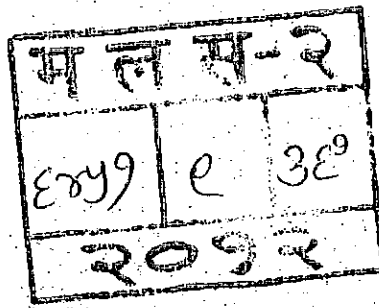 म ल म-२
६४५१ ९ ३६१
२०१५